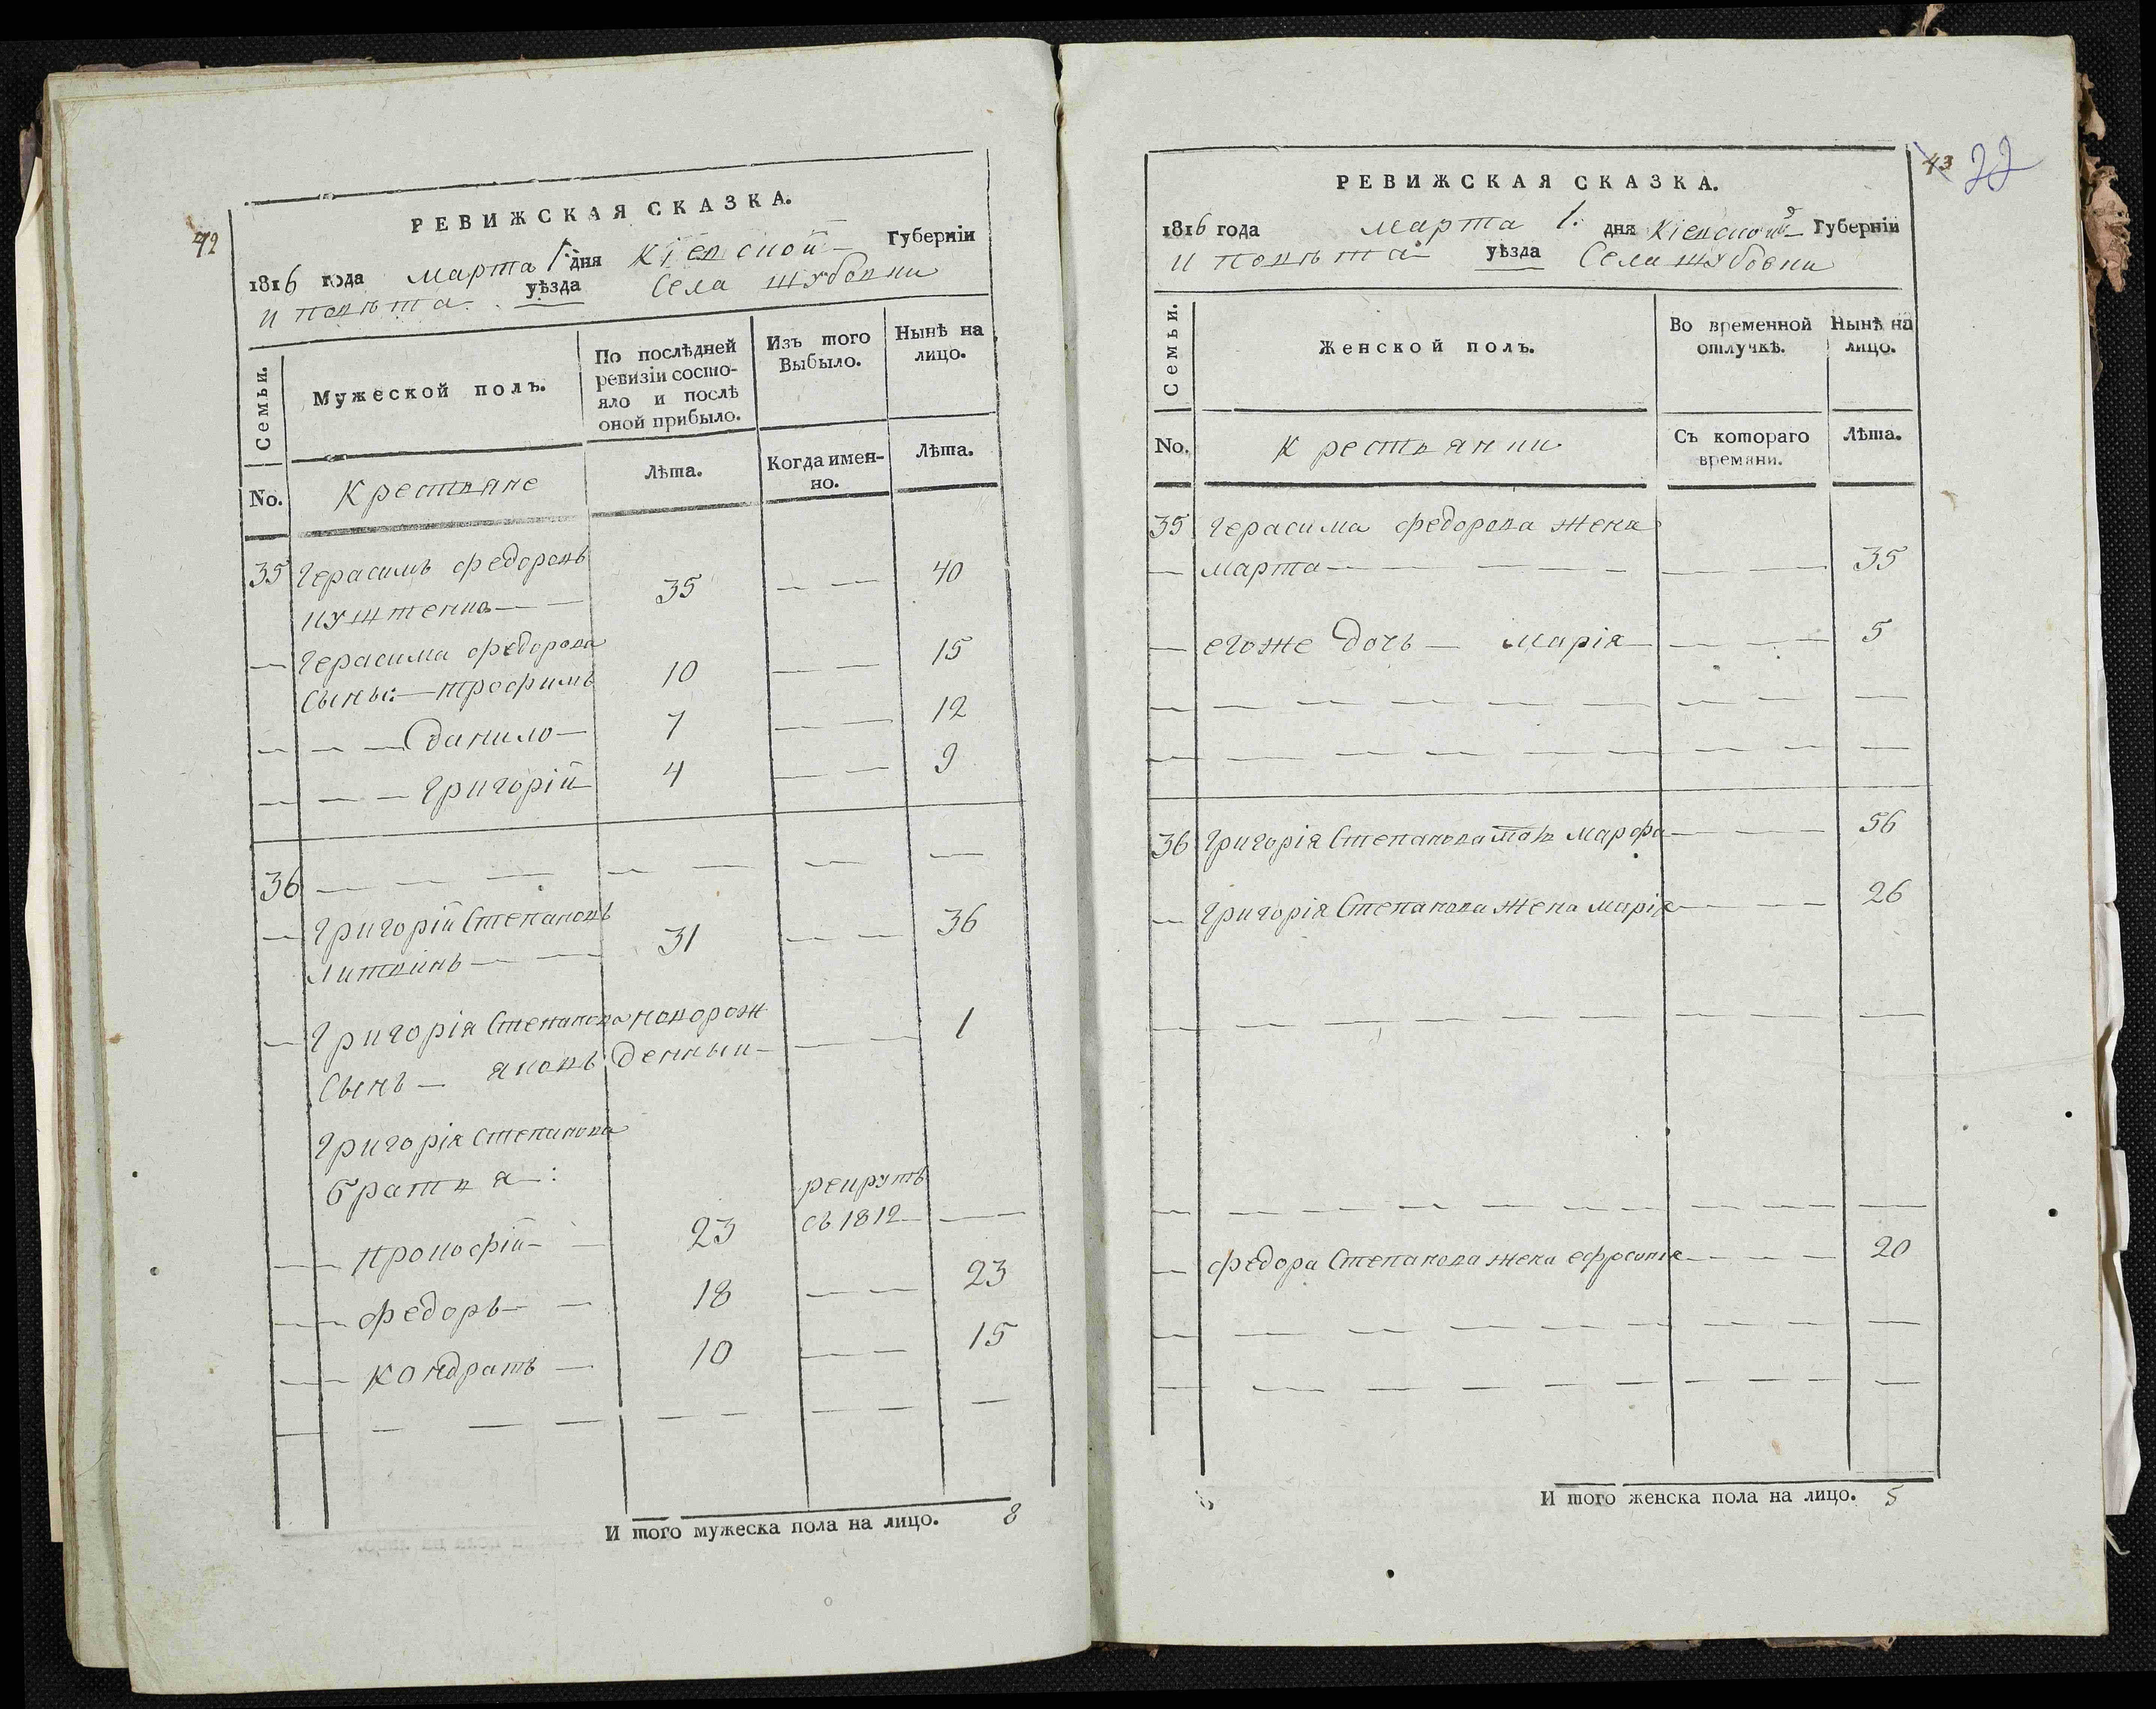 42
РЕВИЖСКАЯ СКАЗКА.
1816 года марта 1: дня Кіевской Губерніи
и повѣта уѣзда Села Шубовки
Семьи.
Мужеской полъ.
По послѣдней
ревизіи состо-
яло и послѣ
оной прибыло.
Изъ того
Выбыло.
Нынѣ на
лицо.
No.
Крестьяне
Лѣта.
Когда имен-
но.
Лѣта.
35 Герасимъ Федоровъ
35 — — 40
— Герасима Федорова
Сыны: — Трофимъ 10 — — 15
— — — Данило — 7 — — 12
— — — Григорій 4 — — 9
36 — — — — — — — —
— Григорій Степановъ
Литвинъ — — 31 — — 36
— Григорія Степанова новорож
Сынъ — Яковъ денный — — — 1
Григорія Степанова
братья:
рекрутъ
— — Прокофій — — 23 съ 1812 — —
— — Федоръ — — 18 — — 23
— — Кондратъ — 10 — — 15
— — — — — — — — —
И того мужеска пола на лицо. 8
43 22
РЕВИЖСКАЯ СКАЗКА.
1816 года марта 1: дня Кіевской Губерніи
и повѣта уѣзда Села Шубовки
Семьи.
Женской полъ.
Во временной
отлучкѣ.
Нынѣ на
лицо.
No.
Крестьянки
Съ котораго
времяни.
Лѣта.
35 Герасима Федорова жена
— Марта — — — — — — — 35
— егоже дочь — Марія — — — 5
— — — — — — — — — —
— — — — — — — — — —
36 Григорія Степанова мать Марфа — — — 56
— Григорія Степанова жена Марія — — — 26
— — — — — — — — — —
— — — — — — — — — —
— Федора Степанова жена Ефросинія — — — 20
— — — — — — — — — —
— — — — — — — — — —
И того женска пола на лицо. 5